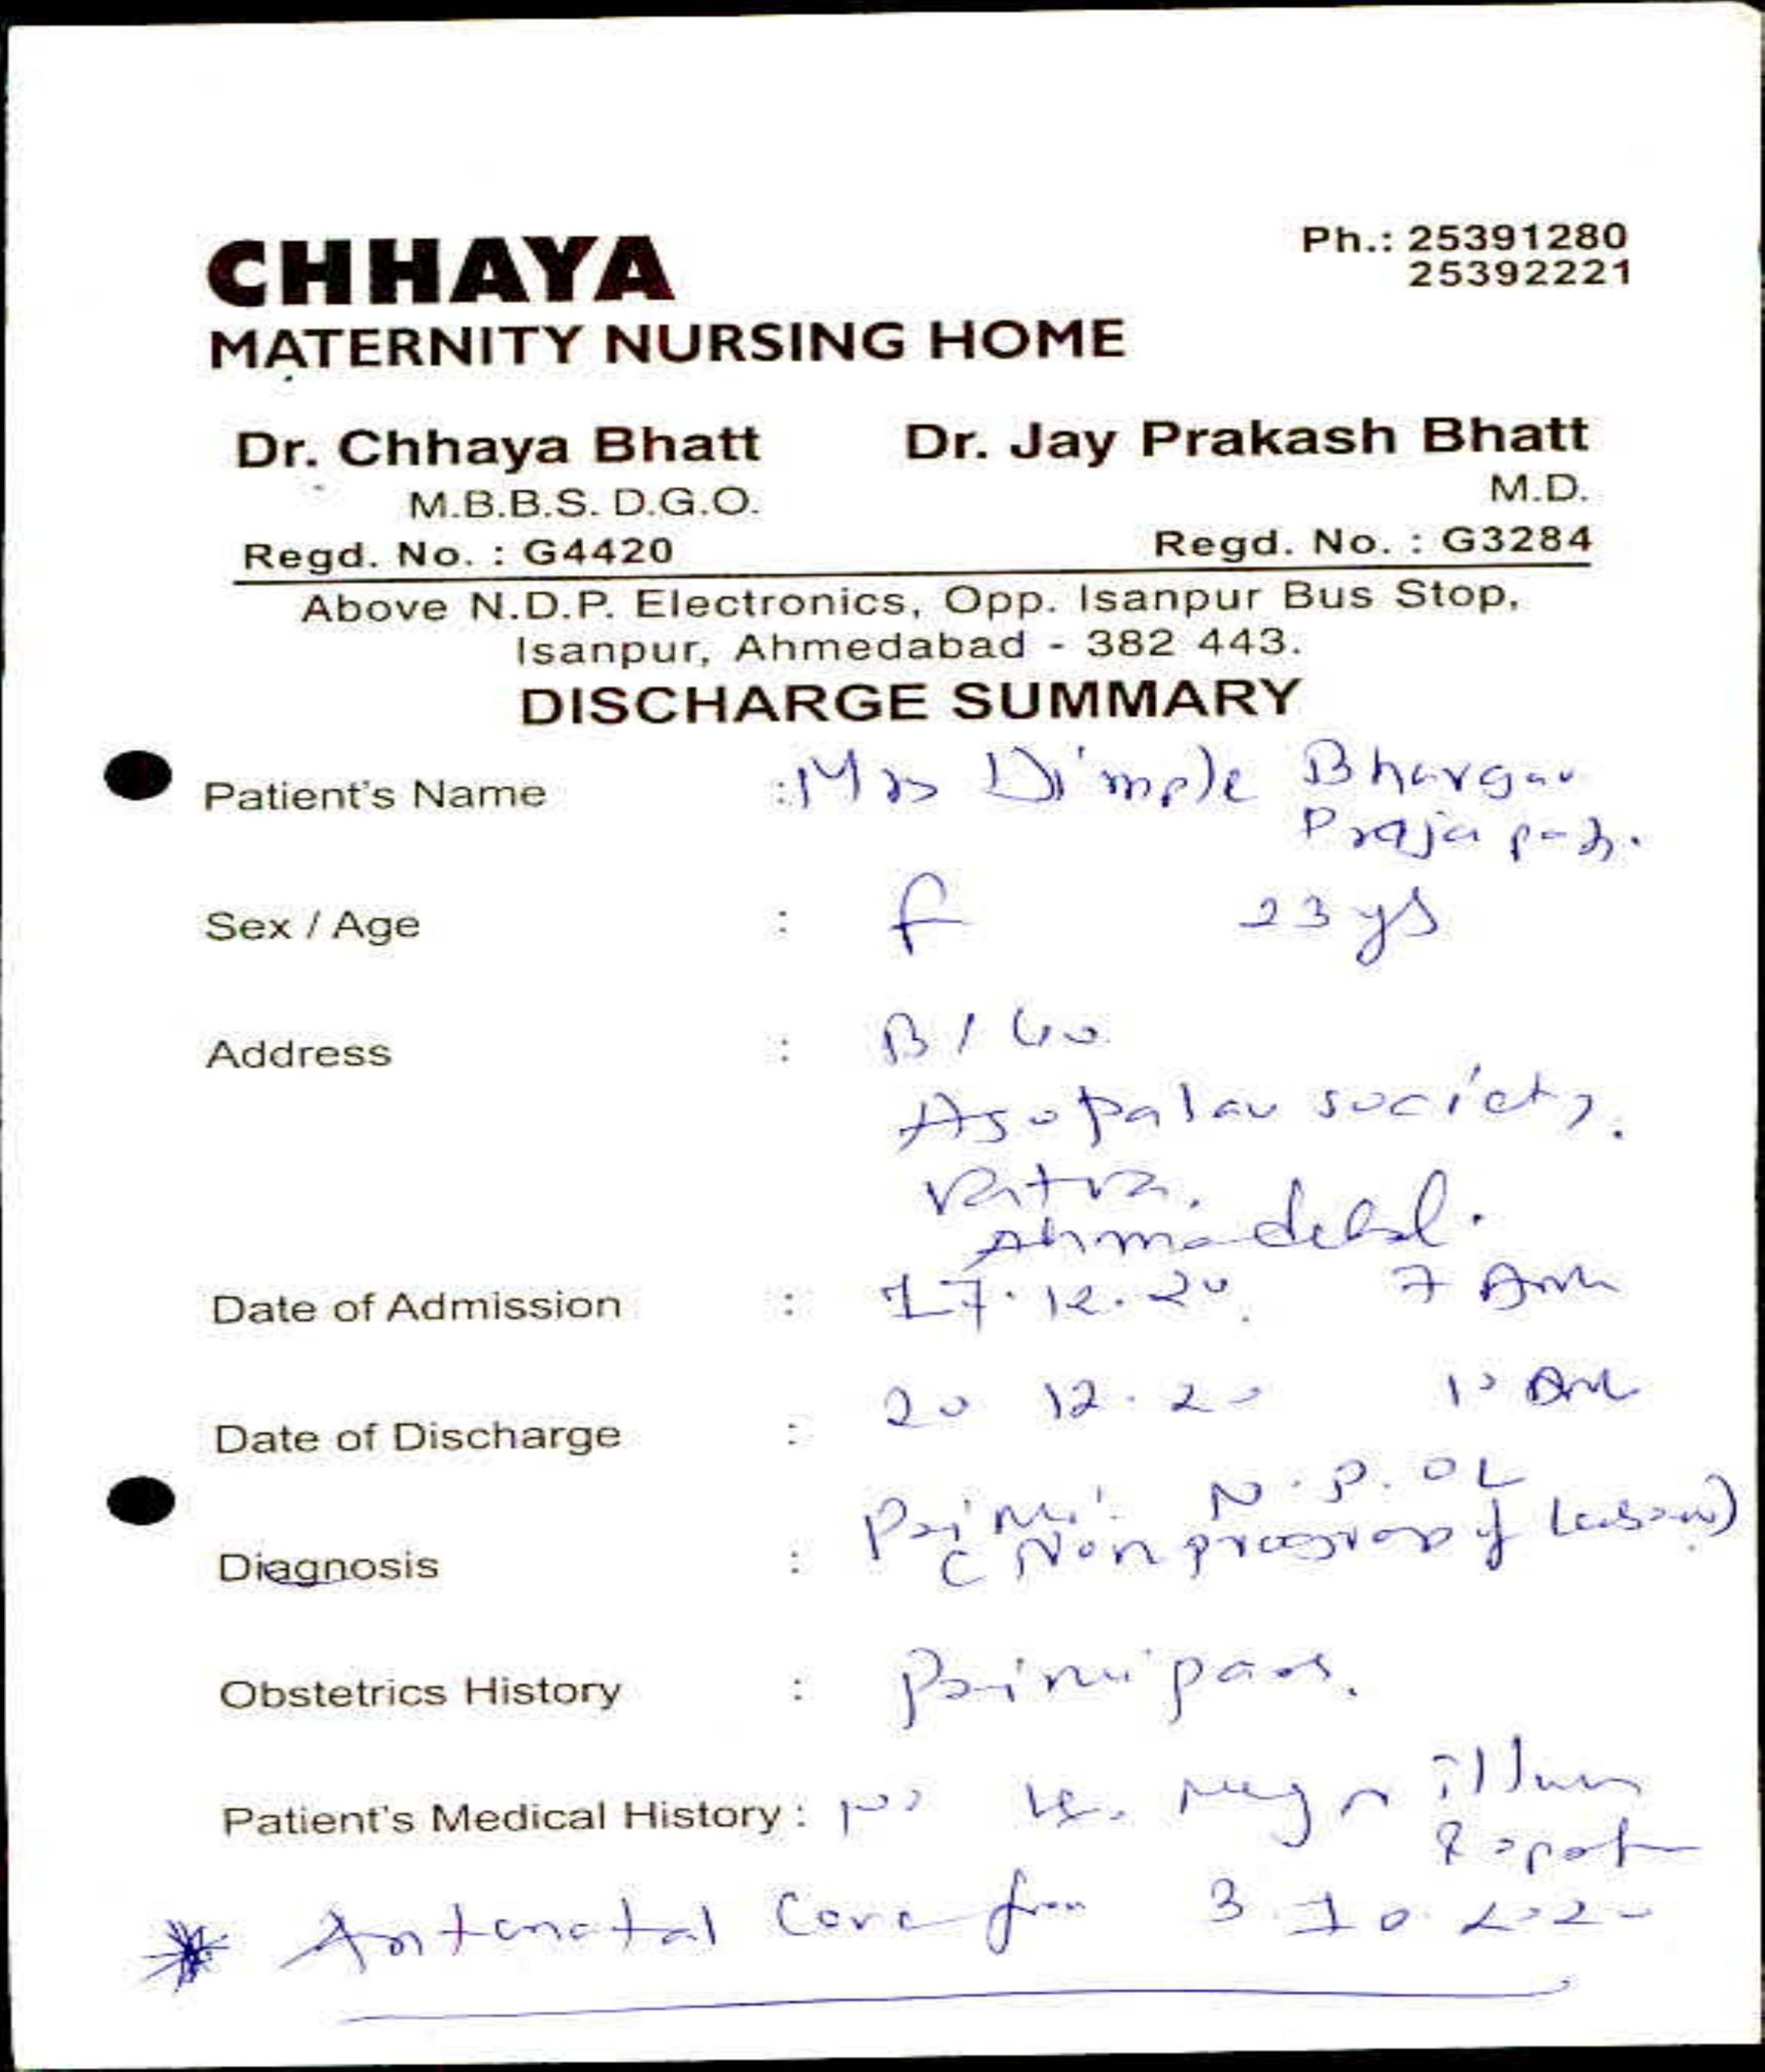 CHHAYA
Ph.: 25391280
25392221
MATERNITY NURSING HOME
Dr. Chhaya Bhatt
Dr. Jay Prakash Bhatt
M.B.B.S. D.G.O.
M.D.
Regd. No. : G4420
Regd. No. : G3284
Above N.D.P. Electronics, Opp. Isanpur Bus Stop,
Isanpur, Ahmedabad - 382 443.
DISCHARGE SUMMARY
Patient's Name : Mrs Dimple Bhargav
Prajapati.
Sex / Age : F 23 ys
Address : B/
Asopalav society.
Vatva.
Ahmedabad.
Date of Admission : 17.12.20. 7 Am
Date of Discharge : 20 12.20 10 Am
Diagnosis : Primi N.P.OL
(Non progress of labour)
Obstetrics History : Primipara.
Patient's Medical History : No major illness
Antenatal Care from 3.10.2020